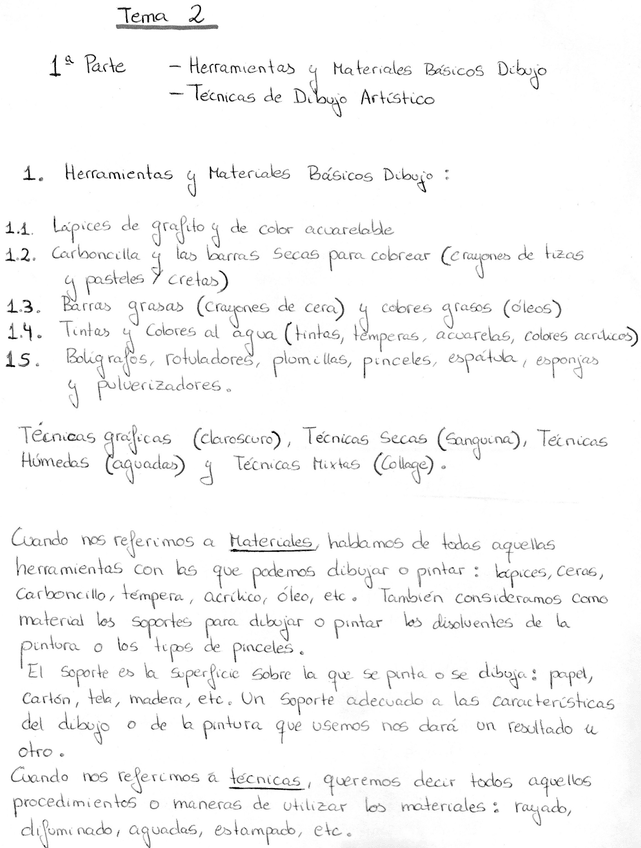 Tema 2
1ª Parte - Herramientas y Materiales Básicos Dibujo
- Técnicas de Dibujo Artístico
1. Herramientas y Materiales Básicos Dibujo :
1.1. Lápices de grafito y de color acuarelable
1.2. Carboncilla y las barras secas para colorear (crayones de tizas
y pasteles y cretas)
1.3. Barras grasas (crayones de cera) y colores grasos (óleos)
1.4. Tintas y Colores al agua (tintas, témperas, acuarelas, colores acrílicos)
15. Bolígrafos, rotuladores, plumillas, pinceles, espátula, esponjas
y pulverizadores.
Técnicas gráficas (claroscuro), Técnicas Secas (Sanguina), Técnicas
Húmedas (aguadas) y Técnicas Mixtas (Collage).
Cuando nos referimos a Materiales, hablamos de todas aquellas
herramientas con las que podemos dibujar o pintar : lápices, Ceras,
Carboncillo, témpera, acrílico, óleo, etc. También consideramos como
material los soportes para dibujar o pintar los disolventes de la
pintura o los tipos de pinceles.
El soporte es la superficie sobre la que se pinta o se dibuja: papel,
Cartón, tela, madera, etc. Un soporte adecuado a las características
del dibujo o de la pintura que usemos nos dará un resultado u
otro.
Cuando nos referimos a técnicas, queremos decir todos aquellos
procedimientos o maneras de utilizar los materiales : rayado,
difuminado, aguadas, estampado, etc.